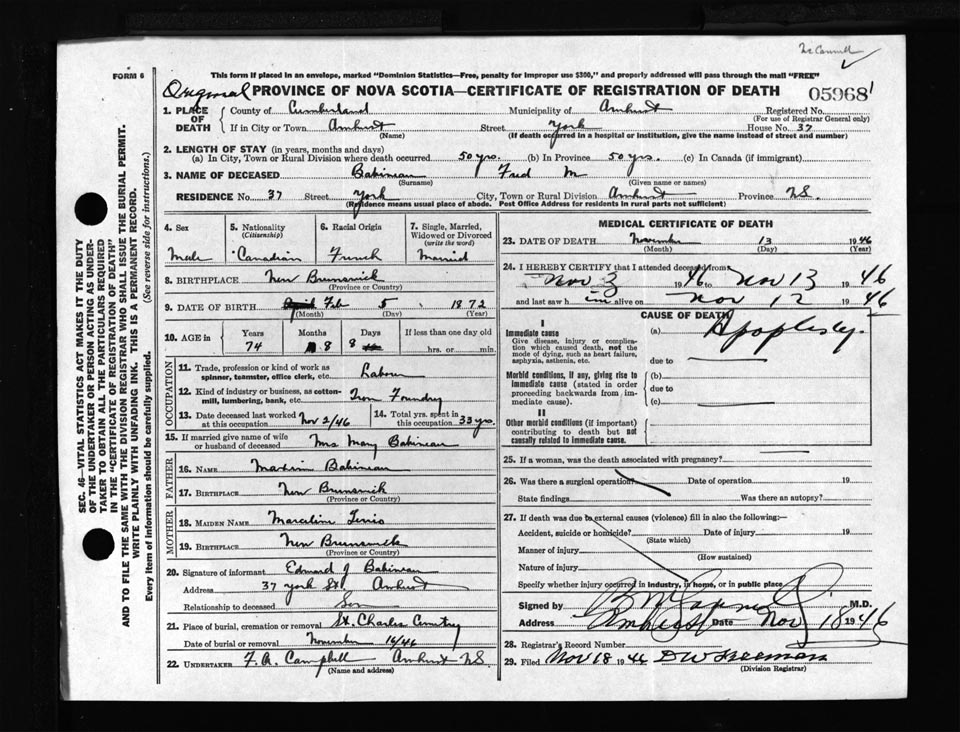 McConnell
FORM 6
This form if placed in an envelope, marked "Dominion Statistics—Free, penalty for improper use $300," and properly addressed will pass through the mail "FREE"
Original PROVINCE OF NOVA SCOTIA—CERTIFICATE OF REGISTRATION OF DEATH 05968
1. PLACE OF DEATH County of Cumberland Municipality of Amherst Registered No.
(For use of Registrar General only)
If in City or Town Amherst Street York House No. 37
(Name) (If death occurred in a hospital or institution, give the name instead of street and number)
2. LENGTH OF STAY (in years, months and days)
(a) In City, Town or Rural Division where death occurred 50 yrs. (b) In Province 50 yrs. (c) In Canada (if immigrant)
3. NAME OF DECEASED Babineau Fred M
(Surname) (Given name or names)
RESIDENCE No. 37 Street York City, Town or Rural Division Amherst Province NS.
(Residence means usual place of abode. Post Office Address for residents in rural parts not sufficient)
4. Sex 5. Nationality 6. Racial Origin 7. Single, Married, Widowed or Divorced
(Citizenship) (write the word)
Male Canadian French Married
8. BIRTHPLACE New Brunswick
(Province or Country)
9. DATE OF BIRTH Feb 5 1872
(Month) (Day) (Year)
10. AGE in Years Months Days If less than one day old
74 8 8 hrs. or min.
OCCUPATION
11. Trade, profession or kind of work as spinner, teamster, office clerk, etc. Labour
12. Kind of industry or business, as cotton-mill, lumbering, bank, etc. Iron Foundry
13. Date deceased last worked at this occupation Nov 2/46 14. Total yrs. spent in this occupation 33 yrs.
15. If married give name of wife or husband of deceased Mrs Mary Babineau
FATHER
16. NAME Babineau
17. BIRTHPLACE New Brunswick
(Province or Country)
MOTHER
18. MAIDEN NAME
19. BIRTHPLACE New Brunswick
(Province or Country)
20. Signature of informant Edmard J Babineau
Address 37 York St Amherst
Relationship to deceased Son
21. Place of burial, cremation or removal St. Charles Cemetery
Date of burial or removal November 16/46
22. UNDERTAKER F. A. Campbell Amherst NS.
(Name and address)
MEDICAL CERTIFICATE OF DEATH
23. DATE OF DEATH November 13 1946
(Month) (Day) (Year)
24. I HEREBY CERTIFY that I attended deceased from
Nov 3 1946 to Nov 13 1946
and last saw h im alive on Nov 12 1946
CAUSE OF DEATH
I
Immediate cause (a) Apoplexy
Give disease, injury or complication which caused death, not the mode of dying, such as heart failure, asphyxia, asthenia, etc.
due to
Morbid conditions, if any, giving rise to immediate cause (stated in order proceeding backwards from immediate cause).
(b)
due to
(c)
II
Other morbid conditions (if important) contributing to death but not causally related to immediate cause.
25. If a woman, was the death associated with pregnancy?
26. Was there a surgical operation? Date of operation 19
State findings Was there an autopsy?
27. If death was due to external causes (violence) fill in also the following:—
Accident, suicide or homicide? Date of injury 19
(State which)
Manner of injury
(How sustained)
Nature of injury
Specify whether injury occurred in industry, in home, or in public place
Signed by M.D.
Address Amherst Date Nov 18 1946
28. Registrar's Record Number
29. Filed Nov 18 1946 D W Freeman
(Division Registrar)
SEC. 46—VITAL STATISTICS ACT MAKES IT THE DUTY
OF THE UNDERTAKER OR PERSON ACTING AS UNDER-
TAKER TO OBTAIN ALL THE PARTICULARS REQUIRED
IN THE "CERTIFICATE OF REGISTRATION OF DEATH"
AND TO FILE THE SAME WITH THE DIVISION REGISTRAR WHO SHALL ISSUE THE BURIAL PERMIT.
WRITE PLAINLY WITH UNFADING INK. THIS IS A PERMANENT RECORD.
Every item of information should be carefully supplied. (See reverse side for instructions.)